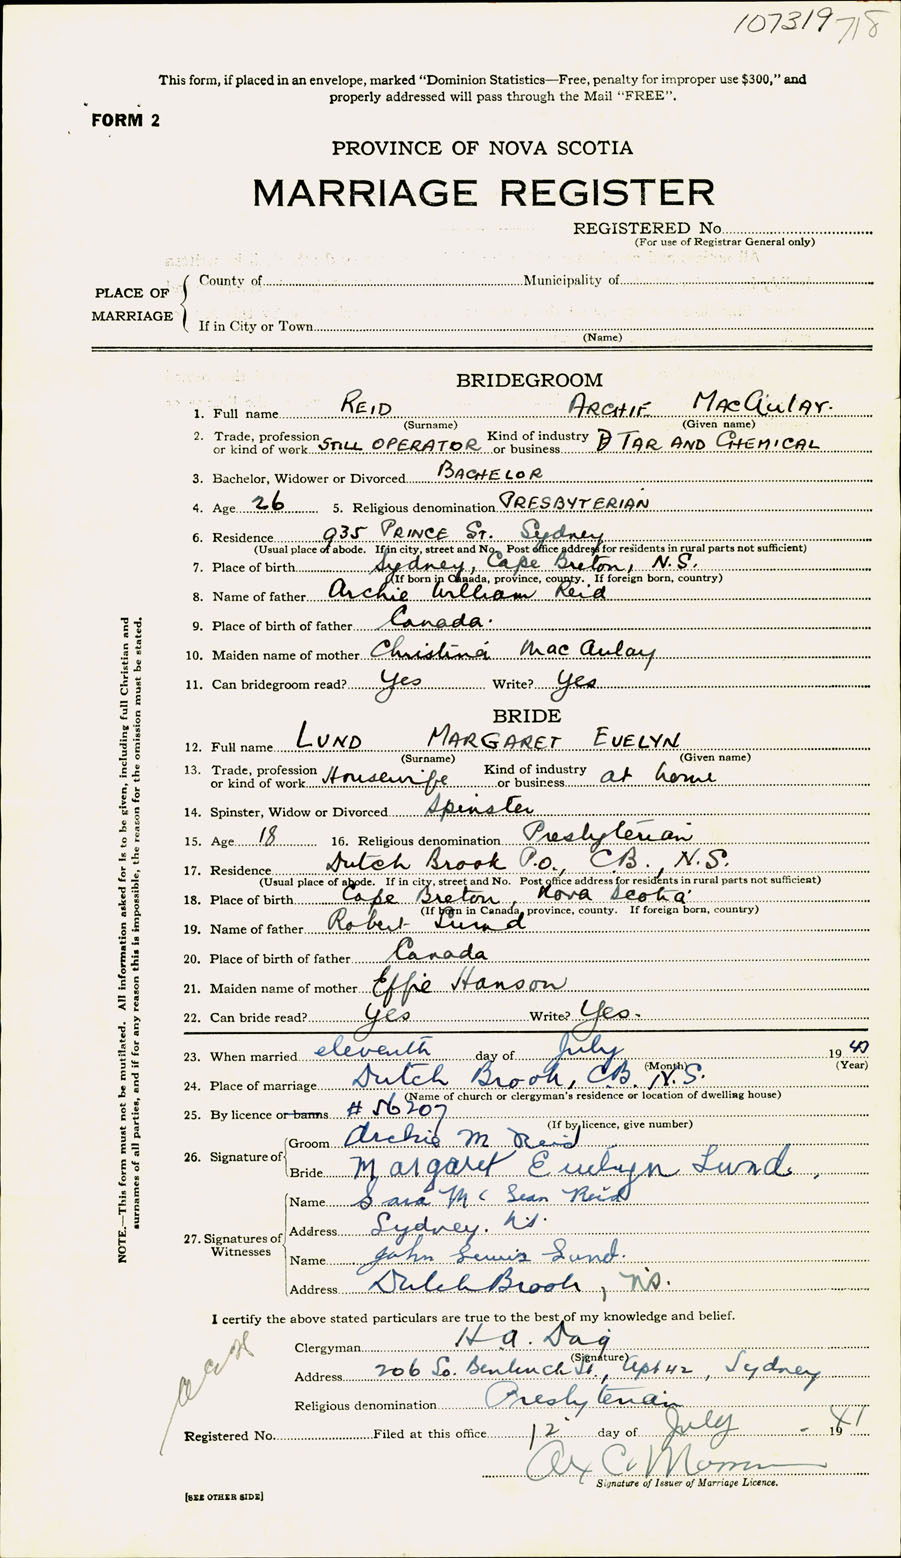 107319 718
This form, if placed in an envelope, marked “Dominion Statistics—Free, penalty for improper use $300,” and
properly addressed will pass through the Mail “FREE”.
FORM 2
PROVINCE OF NOVA SCOTIA
MARRIAGE REGISTER
REGISTERED No.
(For use of Registrar General only)
PLACE OF MARRIAGE
County of Municipality of
If in City or Town
(Name)
BRIDEGROOM
1. Full name REID ARCHIE MACAULAY.
(Surname) (Given name)
2. Trade, profession or kind of work STILL OPERATOR Kind of industry or business TAR AND CHEMICAL
3. Bachelor, Widower or Divorced BACHELOR
4. Age 26 5. Religious denomination PRESBYTERIAN
6. Residence 935 PRINCE ST. Sydney
(Usual place of abode. If in city, street and No. Post office address for residents in rural parts not sufficient)
7. Place of birth Sydney, Cape Breton, N.S.
(If born in Canada, province, county. If foreign born, country)
8. Name of father Archie William Reid
9. Place of birth of father Canada.
10. Maiden name of mother Christina MacAulay
11. Can bridegroom read? Yes Write? Yes
BRIDE
12. Full name LUND MARGARET EVELYN
(Surname) (Given name)
13. Trade, profession or kind of work Housewife Kind of industry or business at home
14. Spinster, Widow or Divorced Spinster
15. Age 18 16. Religious denomination Presbyterian
17. Residence Dutch Brook P.O., C.B., N.S.
(Usual place of abode. If in city, street and No. Post office address for residents in rural parts not sufficient)
18. Place of birth Cape Breton, Nova Scotia
(If born in Canada, province, county. If foreign born, country)
19. Name of father Robert Lund
20. Place of birth of father Canada
21. Maiden name of mother Effie Hanson
22. Can bride read? Yes Write? Yes.
23. When married eleventh day of July 19
(Month) (Year)
24. Place of marriage Dutch Brook, C.B. N.S.
(Name of church or clergyman's residence or location of dwelling house)
25. By licence or banns # 56207
(If by licence, give number)
26. Signature of
Groom Archie M Reid
Bride Margaret Evelyn Lund.
27. Signatures of Witnesses
Name Sara McLean Reid
Address Sydney. N.S.
Name John Lewis Lund.
Address Dutch Brook, N.S.
I certify the above stated particulars are true to the best of my knowledge and belief.
Clergyman H A.
(Signature)
Address 206 So. St., Apt 42, Sydney
Religious denomination Presbyterian
Registered No. Filed at this office 12 day of July 1941
Signature of Issuer of Marriage Licence.
[SEE OTHER SIDE]
NOTE.—This form must not be mutilated. All information asked for is to be given, including full Christian and
surnames of all parties, and if for any reason this is impossible, the reason for the omission must be stated.